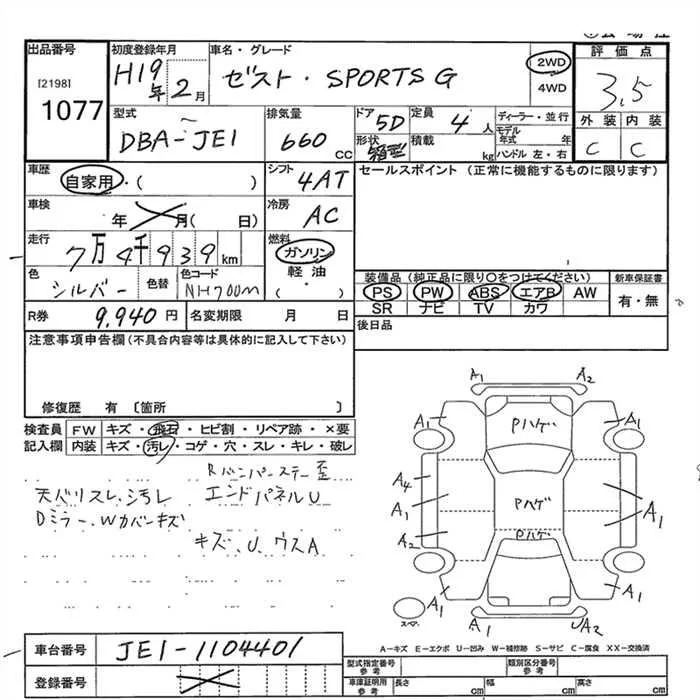 出品番号 初度登録年月 車名・グレード 評価点
[2198] 1077
H19年 2月 ゼスト・SPORTS G 2WD 4WD 3.5
外装 内装
C C
型式 排気量 ドア 定員 ディーラー・並行
DBA-JE1 660cc 5D 4人 モデル年式 年
形状 箱型 積載 kg ハンドル 左・右
車歴 シフト セールスポイント (正常に機能するものに限ります)
自家用・( ) 4AT
車検 年 月( 日) 冷房 AC
走行 7万4千939km 燃料 ガソリン 軽油 ( )
色 シルバー 色替 色コード NH700m
装備品 (純正品に限り○をつけてください) 新車保証書
PS PW ABS エアB AW 有・無
SR ナビ TV カワ
R券 9,940円 名変期限 月 日 後日品
注意事項申告欄(不具合内容等は具体的に記入して下さい)
修復歴 有 〔箇所 〕
検査員記入欄 FW キズ・飛石・ヒビ割・リペア跡・×要
内装 キズ・汚レ・コゲ・穴・スレ・キレ・破レ
Rバンパーステー歪
天バリスレ、汚レ エンドパネルU
Dミラー、Wカバーキズ
キズ、U、ウスA
A1 A2
A1 Pハゲ A1
A4
A1 Pハゲ A1
A2 Pハゲ
A1 A1
スマ A1 UA2
A-キズ E-エクボ U-凹み W-補修跡 S-サビ C-腐食 XX-交換済
車台番号 JE1-1104401
登録番号
型式指定番号 参考 類別区分番号 参考
車庫証明用 参考 長さ cm 幅 cm 高さ cm